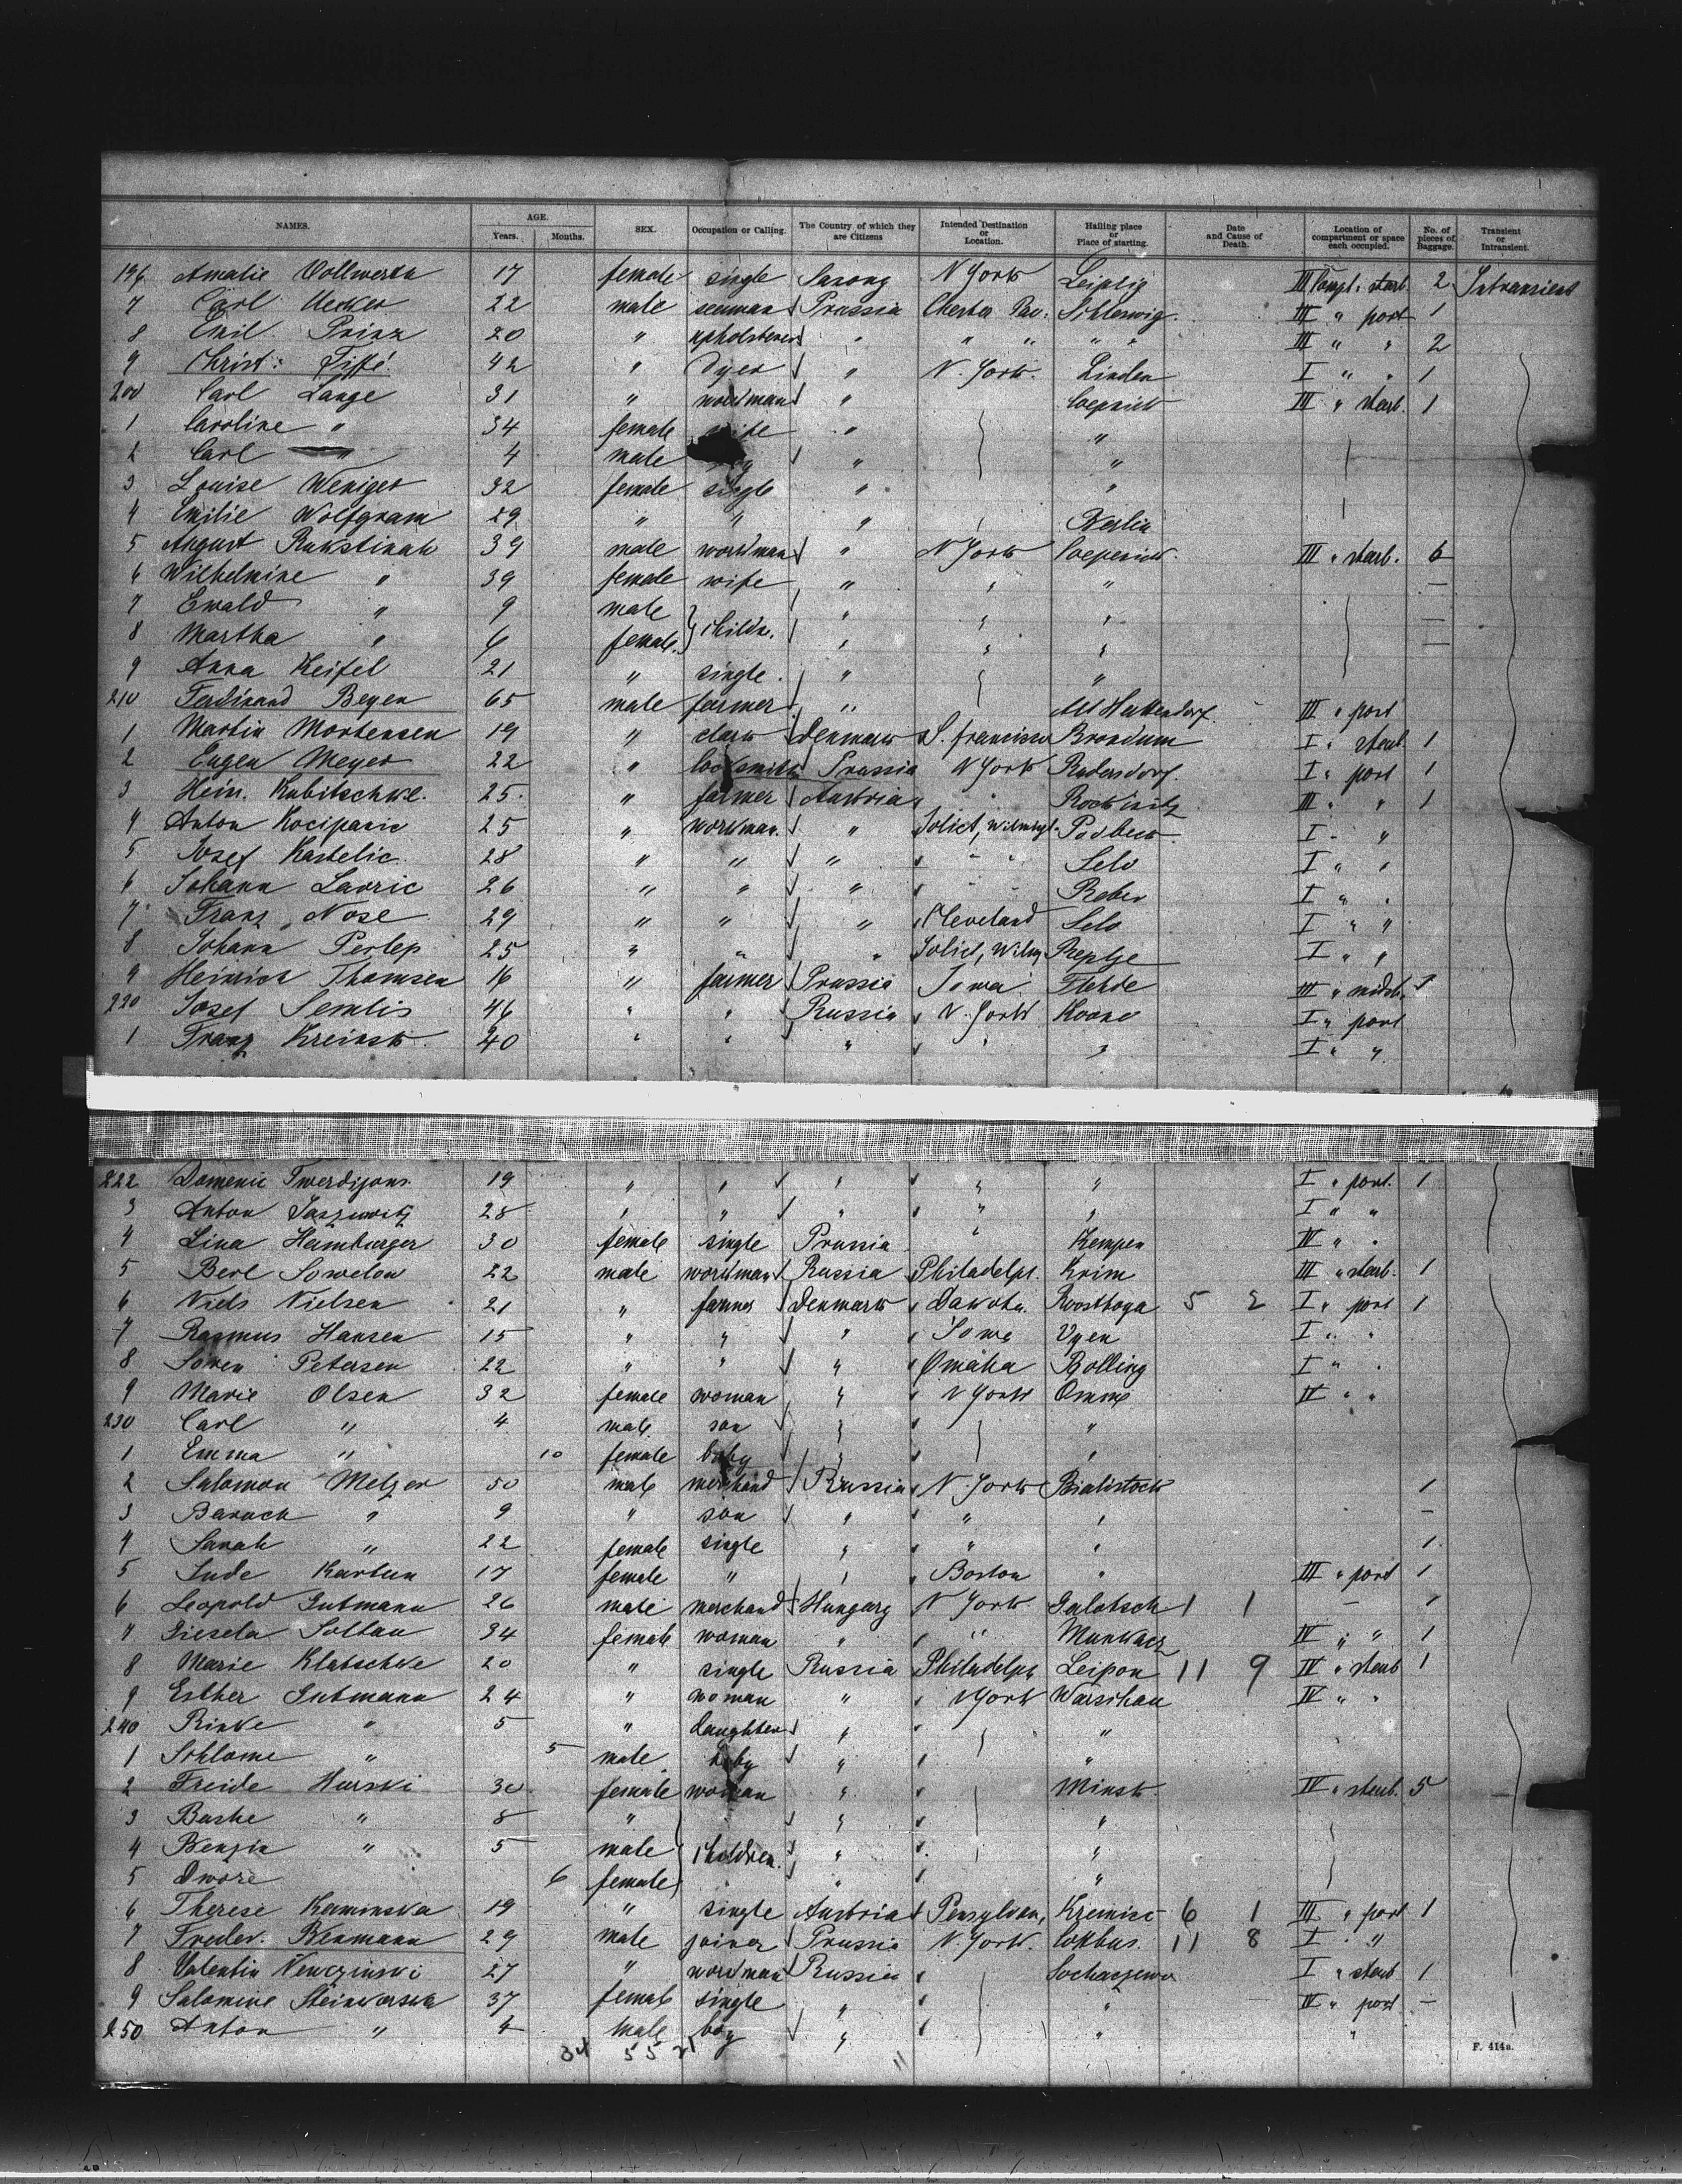 NAMES. AGE. Years. Months. SEX. Occupation or Calling. The Country of which they are Citizens Intended Destination or Location. Hailing place or Place of starting. Date and Cause of Death. Location of compartment or space each occupied. No. of pieces of Baggage. Transient or Intransient.
196 Amalie Vollwerth 17 female single Saxony N York Leipzig III Compt. starb. 2 Intransient
7 Carl Uecker 22 male seeman Prussia Chester Pav. Schleswig. III " port 1
8 Emil Prinz 20 " upholsterer " " " " " III " " 2
9 Christ: 42 " Dyer " N. York. Linden I " " 1
200 Carl Lange 31 " workman " Coepnick III " starb. 1
1 Caroline " 34 female wife " "
2 Carl " 4 male " "
3 Louise Weniger 32 female single " "
4 Emilie Wolfgram 29 " " " Berlin
5 August Rukstinah 39 male workman " N York Coepenick. III " starb. 6
6 Wilhelmine " 39 female wife " " " —
7 Ewald " 9 male childr. " " " —
8 Martha " 6 female " " " —
9 Anna Keifel 21 " single. " "
210 Ferdinand Beyen 65 male farmer " Alt Huttendorf. III " port
1 Martin Mortensen 19 " clark Denmark S. francisco Brondum I " starb. 1
2 Eugen Meyer 22 " locksmith Prussia N York Rudersdorf. I " port 1
3 Hein. Kubitschke. 25. " farmer Austria " Rockisitz III " " 1
4 Anton Kocipasic 25 " workman. " Joliet, Wilmingt. Podbeck I " "
5 Josef Kastelic. 28 " " " " " Selo I " "
6 Johann Lavric 26 " " " " " Reber I " "
7 Franz Nose 29 " " " Cleveland Selo I " "
8 Johann Perlep 25 " " " Joliet, Wilm. Replje I " "
9 Heinrich Thomsen 16 " farmer Prussia Iowa Flehde III " midsh. 1
220 Josef Semlis 46 " " Russia N. York Kovno I " port
1 Franz Kreinsk 40 " " " " " I " "
222 Domenic Twerdijons. 19 " " " " " I " port. 1
3 Anton Jaszewitz 28 " " " " " I " "
4 Lina Hamburger 30 female single Prussia " Kempen IV " "
5 Berl Sowelow 22 male workman Russia Philadelph. Krim III " starb. 1
6 Niels Nielsen 21 " farmer Denmark Dakota. Roostboga 5 2 I " port 1
7 Rasmus Hansen 15 " " " Iowa Vyen I " "
8 Sören Petersen 22 " " " Omaha Bolling I " "
9 Marie Olsen 32 female woman " N York Omme IV " "
230 Carl " 4 male son " "
1 Emma " 10 female baby " "
2 Salomon Metzer 50 male merchand Russia N. York Bialistock 1
3 Baruch " 9 " son " " " —
4 Sarah " 22 female single " " " 1
5 Jude Kartun 17 female " " Boston " III " port 1
6 Leopold Gutmann 26 male merchand Hungary N York Galatsch 1 1 — 1
7 Giesela Soltau 34 female woman " " Munkacz IV " " 1
8 Marie Klatschke 20 " single Russia Philadelph Leipon 11 9 IV " starb 1
9 Esther Gutmann 24 " woman " N York Warschau IV " "
240 Rinke " 5 " daughter " "
1 Schlome " 5 male baby " "
2 Freide Hurski 30 female woman " Minsk IV " starb. 5
3 Bashe " 8 " " "
4 Benzin " 5 male children. " "
5 Dwore 6 female " "
6 Therese Kaminska 19 " single Austria Pensylvan. Kzemise 6 1 III " port 1
7 Freder. Benmann 29 male joiner Prussia N. York. Cokbus. 11 8 I " "
8 Valentin Newczinski 27 " workman Russia Sochaczewo I " starb 1
9 Salomine Steinworska 37 female single " " IV " port —
250 Anton " 4 male boy " " "
34 55 21 11
F. 414a.